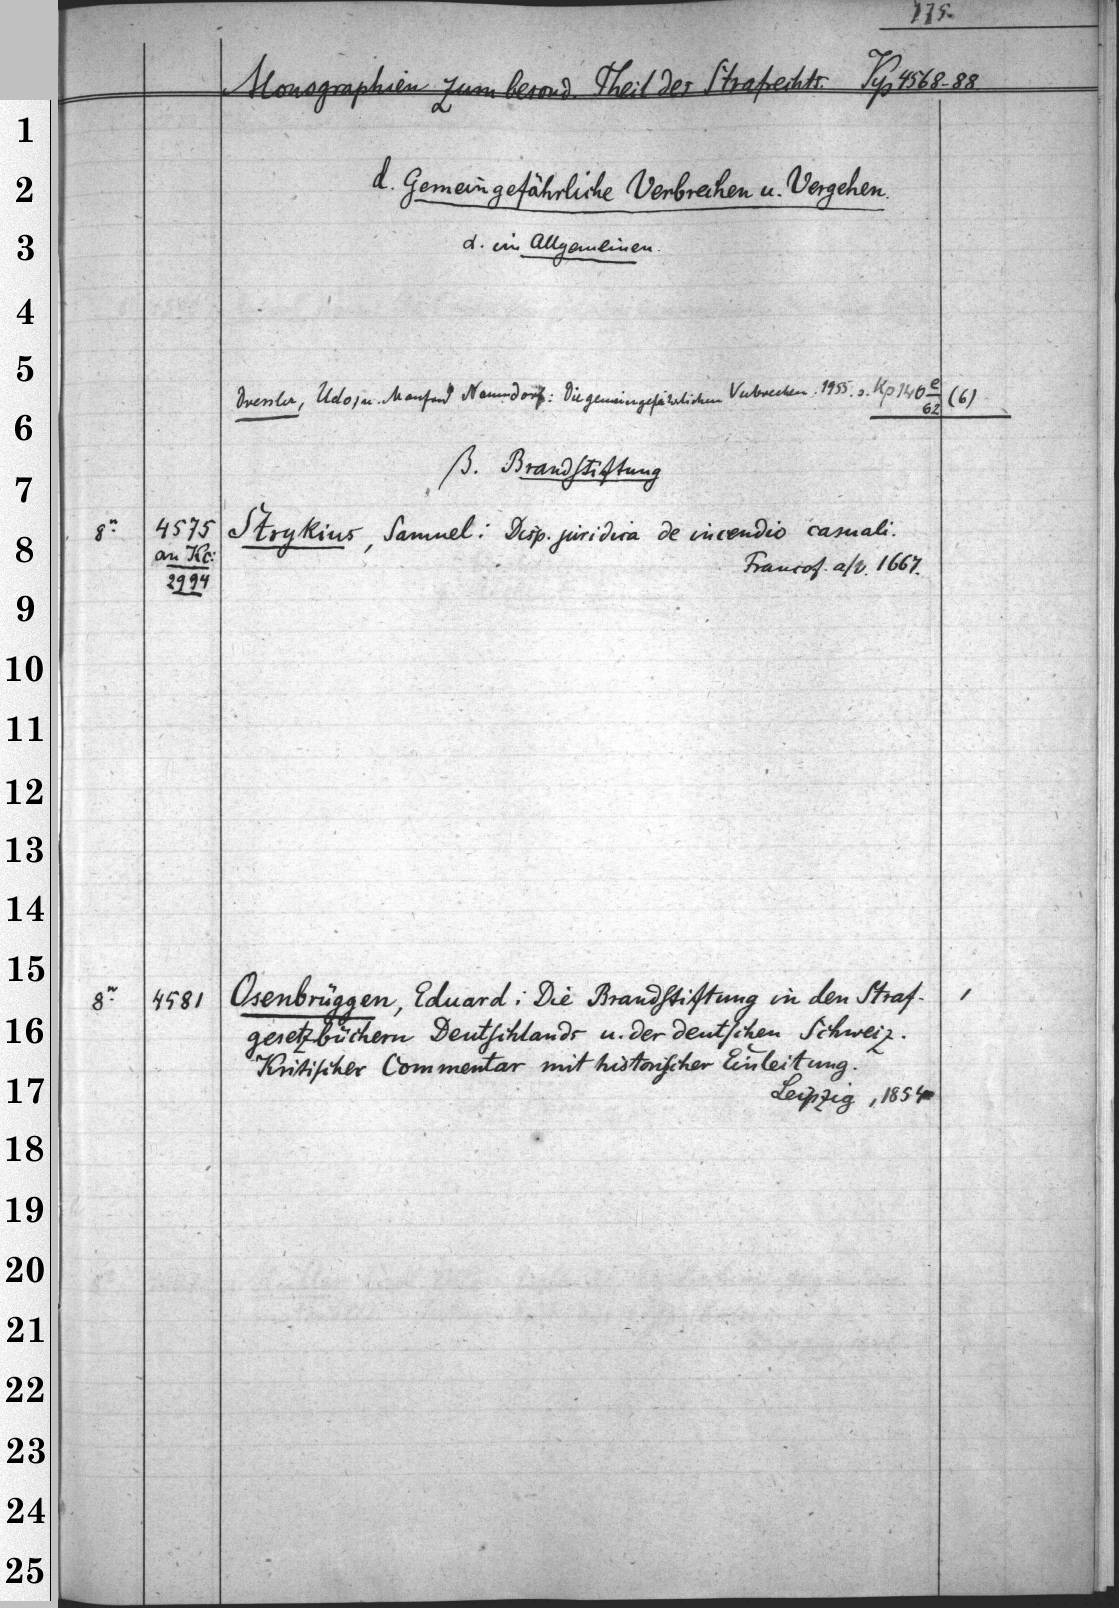 175.
Monographien zum besond. Theil des Strafrechts. Kp 4568-88
1
2 d. Gemeingefährliche Verbrechen u. Vergehen.
3 α. im Allgemeinen.
4
5
Dressler, Udo, u. Manfred Naundorf: Die gemeingefährlichen Verbrechen. 1955. s. Kp 140 e/62 (6)
6
β. Brandstiftung
7
8º 4575 Strykius, Samuel: Disp. juridica de incendio casuali.
8 an Kc: Francof. a/V. 1667.
2994
9
10
11
12
13
14
15
8º 4581 Osenbrüggen, Eduard: Die Brandstiftung in den Straf- 1
16 gesetzbüchern Deutschlands u. der deutschen Schweiz.
Kritischer Commentar mit historischer Einleitung.
17 Leipzig, 1854
18
19
20
21
22
23
24
25